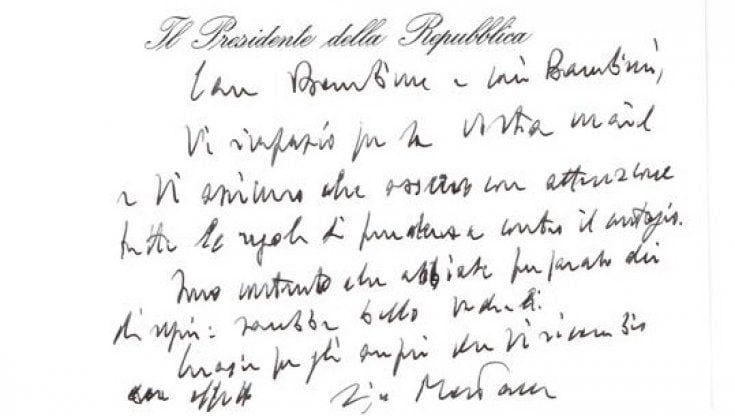 Il Presidente della Repubblica
Care Bambine e cari Bambini,
Vi ringrazio per la vostra mail
e Vi assicuro che osservo con attenzione
tutte le regole di prudenza contro il contagio.
Sono contento che abbiate preparato dei
disegni: sarebbe bello vederli.
Grazie per gli auguri che Vi ricambio
con affetto Sergio Mattarella